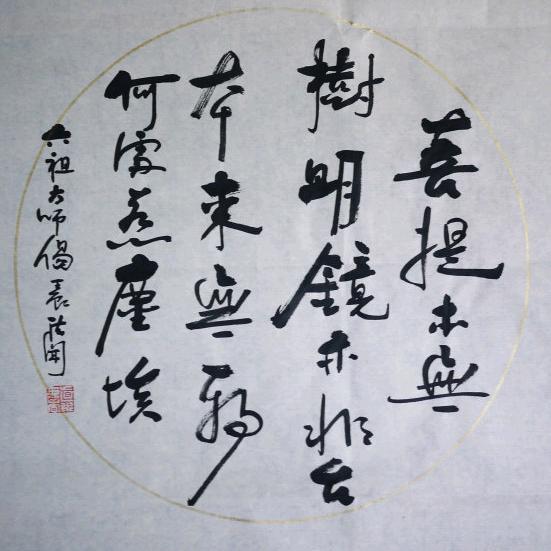 菩提本無
樹明鏡亦非台
本來無一物
何處惹塵埃
六祖大師偈